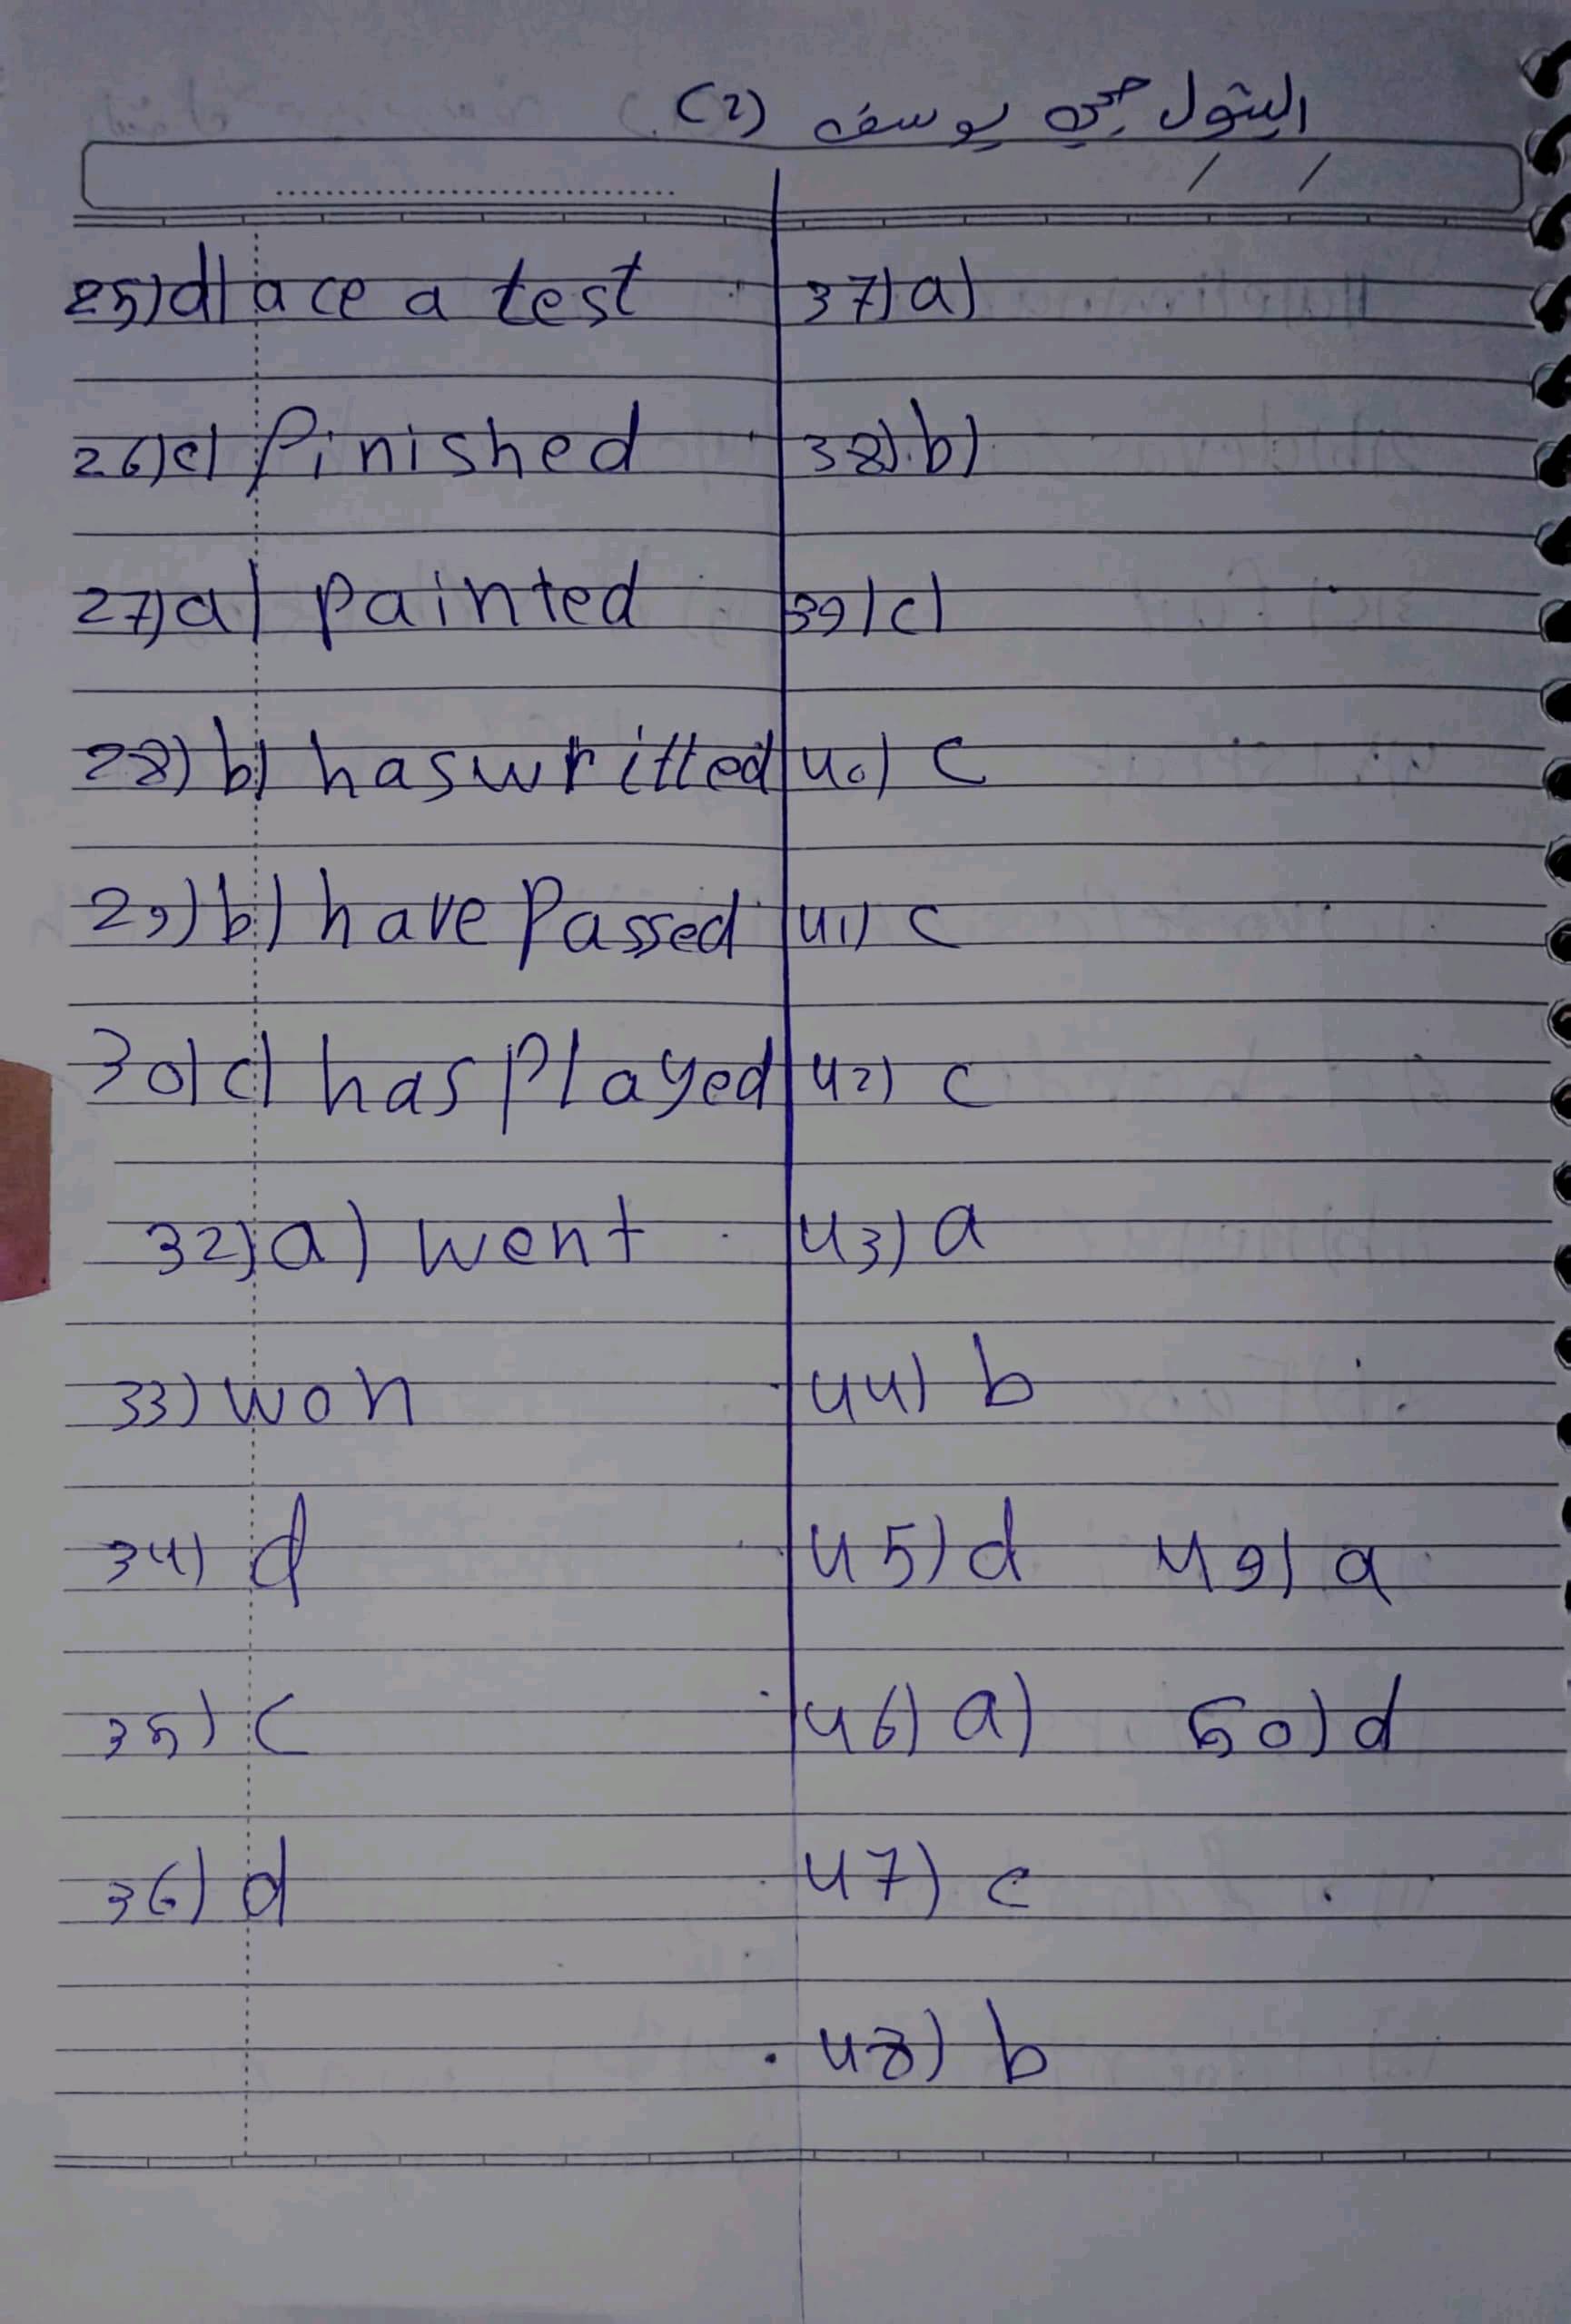 البتول يحيى يوسف (2)
/ /
25) d) ace a test
26) c) finished
27) a) painted
28) b) has writted
29) b) have Passed
30) c) has Played
32) a) went
33) won
34) d
35) c
36) d
37) a)
38) b)
39) c)
40) c
41) c
42) c
43) a
44) b
45) d
46) a)
47) c
48) b
49) a
50) d